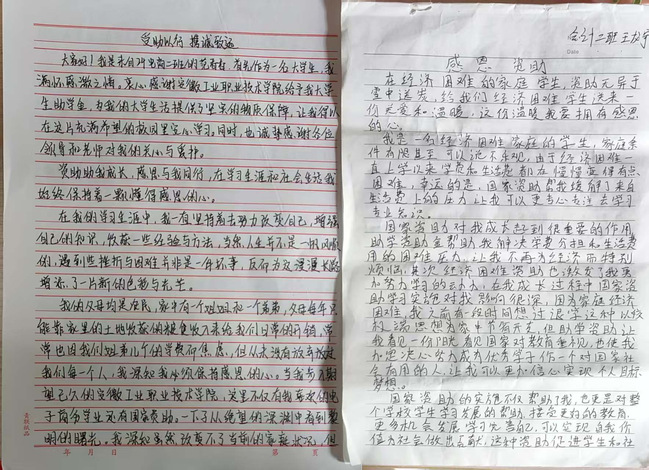 受助以行 携诚致远
大家好！我是来自对电商二班的范青青，首先作为一名大学生，我
满怀感激之情。衷心感谢安徽工业职业技术学院给予我大学
生助学金，为我的大学生活提供了坚实的物质保障，让我得以
在这片充满希望的校园里安心学习，同时，也诚挚感谢各位
领导和老师对我的关心与爱护。
资助助我成长，感恩与我同行，在学习生涯和社会生活我
始终保持着一颗懂得感恩的心。
在我的学习生涯中，我一直坚持着去努力改变自己，增强
自己的知识，收获一些经验与方法，当然人生并不是一帆风顺
的，遇到些挫折与困难并非是一件坏事，反而为段漫漫长路
增添了一片新的色彩与光芒。
我的父母均是农民，家中有一个姐姐和一个弟弟，父母每年只
能靠家里的土地收获的粮食收入来给我们日常的开销，常
常也因我们姐弟几个的学费而焦虑，但从未没有放弃
我们每一个人，我深知我必须保持感恩的心。当我
已久的安徽工业职业技术学院，这里不仅有我喜爱的电
子商务学业还有国家资助。一下子从绝望的深渊中看到黎
明的曙光。我深知虽然改变不了当前的家庭状况，但
年 月 日 第 页
会计二班王龙宇
Date
感恩 资助
在经济困难的家庭学生，资助无异于
雪中送炭，给我们经济困难学生送来一
份关爱和温暖，这份温暖我要拥有感恩
的心。
我是一名经济困难家庭的学生，家庭条
件有限甚至可以说不乐观，由于经济困难一
直上学以来学费和生活费都在慢慢变得有点
困难，幸运的是，国家资助帮我缓解了来自
生活费上的压力让我可以更专心专注去学习
专业知识。
国家资助对我成长起到很重要的作用
助学资金帮助我解决学费负担和生活费
用的困难压力，让我不再为经济而特别
烦恼，其次经济困难资助也激发了我更
加努力学习的动力，在我成长过程中国家资
助学习实施对我影响很深，因为家庭经济
困难，我之前有一段时间想过退学这种以较
极端思想为家中节省开支，但助学资助让
我看见一份阳光看见国家对教育重视，也使我
加坚决心努力成为优秀学子作一个对国家社
会有用的人，让我可以更加信心实现个人目标
梦想。
国家资助的实施不仅帮助了我，也更是对整
个学校学生学习发展的帮助，接受更好的教育，
更多机会发展学习完善自己，可以实现自我价
值为社会做出贡献，这种资助促进学生和社